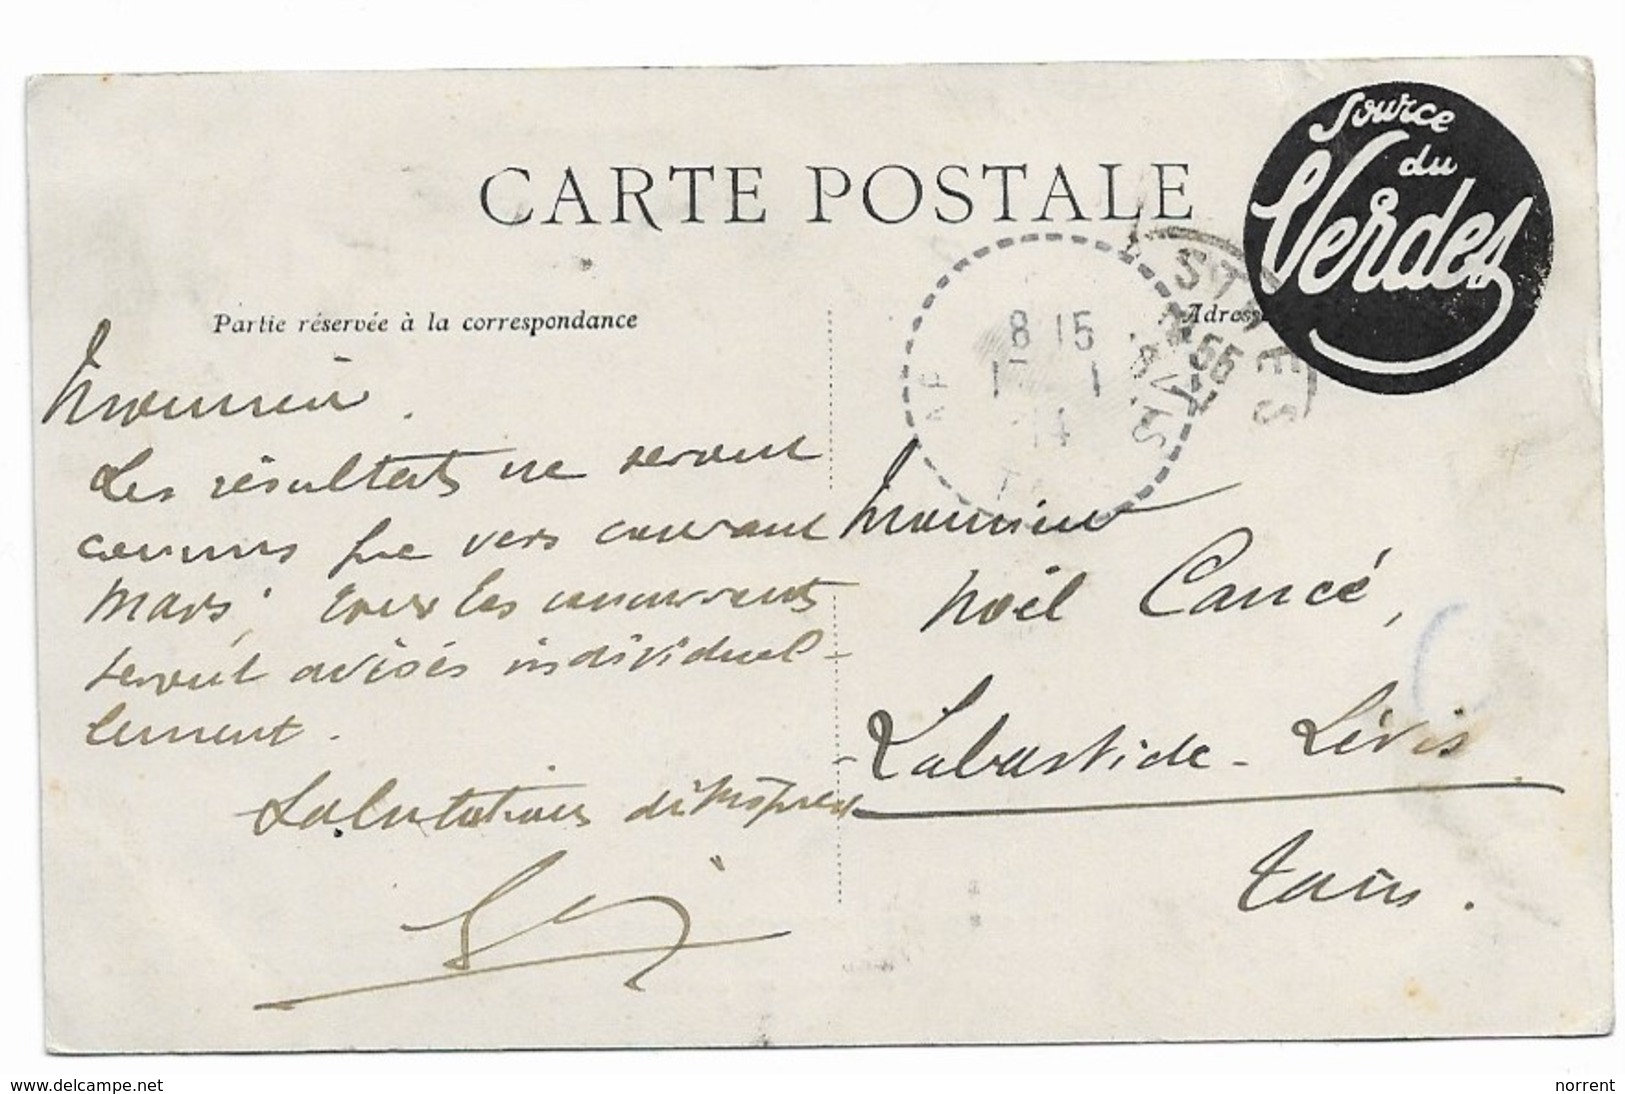 CARTE POSTALE
Source
du
Verdes
Partie réservée à la correspondance
Adresse
8 15
14
Monsieur.
Les résultats ne seront
connus que vers courant
Mars; tous les concurrents
seront avisés individuel-
lement.
Salutations
Monsieur
Noël Cancé,
Labastide-Lévis
Tarn.
www.delcampe.net
norrent